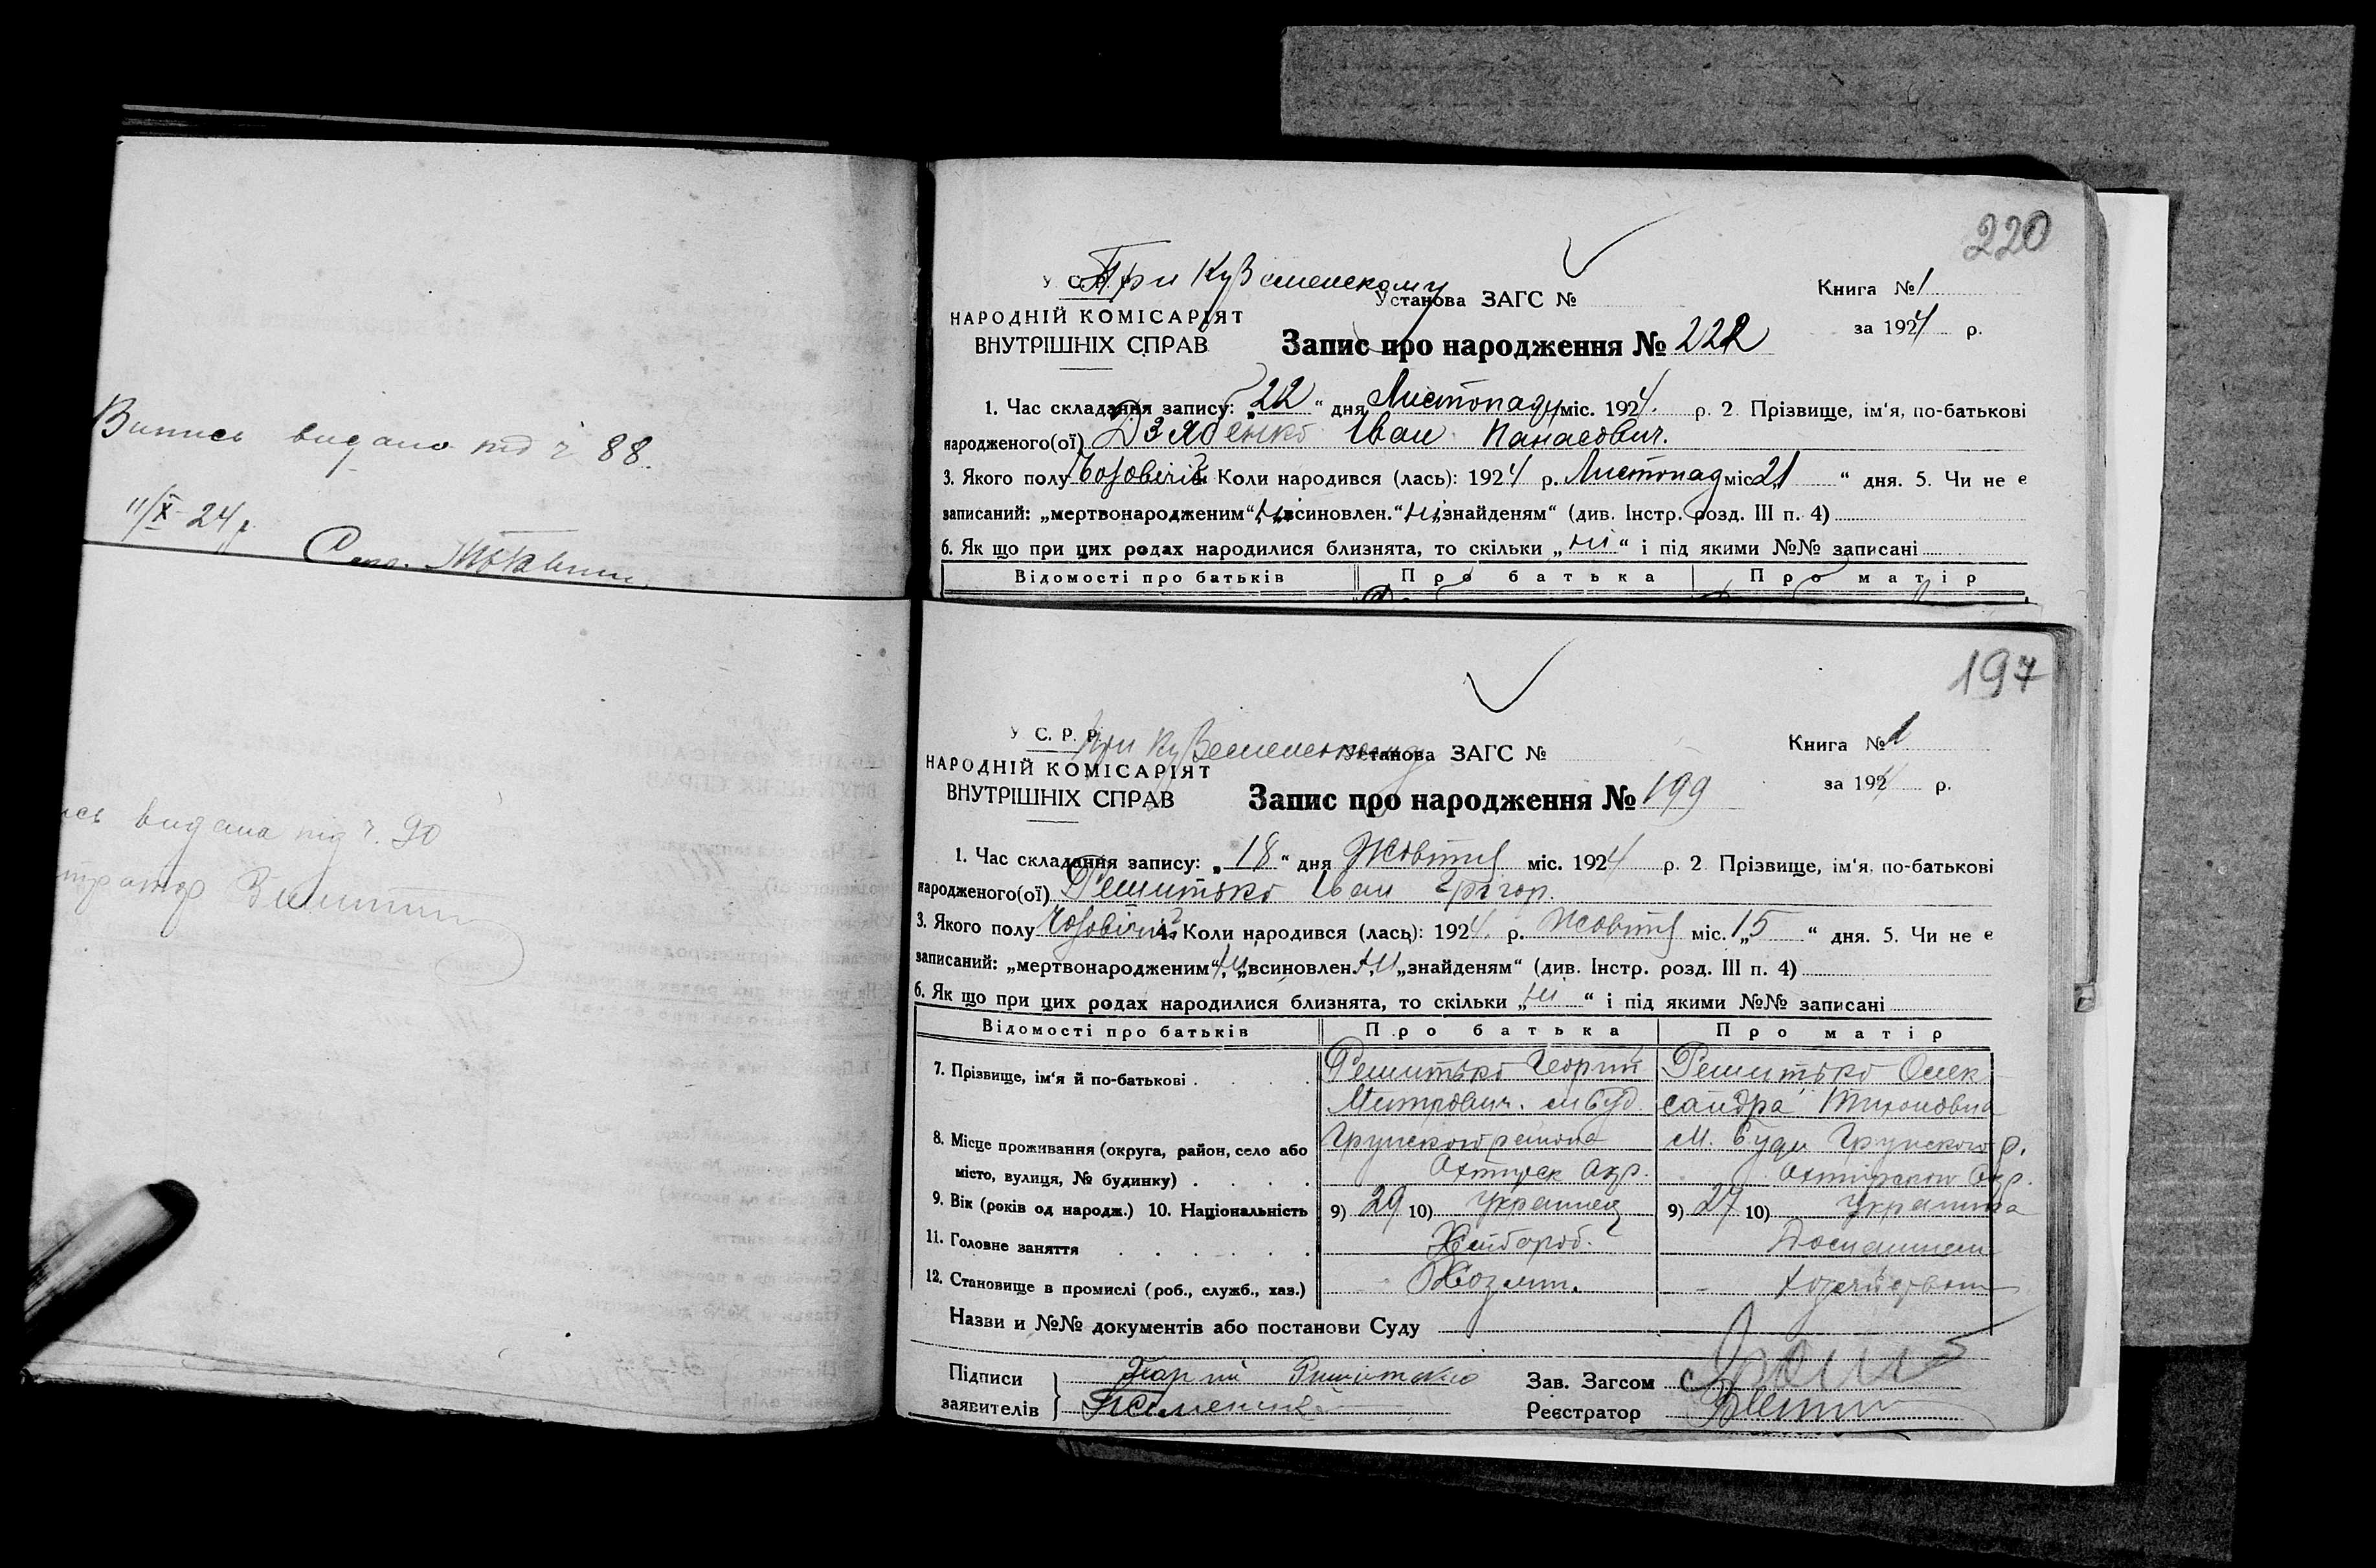 Випись видано під ч 88.
11/X 24 р.
220
При Куземенскому
У С. Р. Р.
Установа ЗАГС №
Книга № 1
НАРОДНІЙ КОМІСАРІЯТ
ВНУТРІШНІХ СПРАВ
за 1924 р.
Запис про народження № 222
1. Час складання запису: „22“ дня Листопаду міс. 1924. р. 2 Прізвище, ім‘я, по-батькові
народженого(ої) Дзябенко Іван Панасович.
3. Якого полу Чоловічі 4. Коли народився (лась): 1924 р. Листопад міс. „21“ дня. 5. Чи не є
записаний: „мертвонародженим“, ні „всиновлен.“ ні „знайденям“ (див. Інстр. розд. III п. 4)
6. Як що при цих родах народилися близнята, то скільки „ні“ і під якими №№ записані
Відомості про батьків Про батька Про матір
видана під ч. 90
197
При Куземенському
У С. Р. Р.
Установа ЗАГС №
Книга № 1
НАРОДНІЙ КОМІСАРІЯТ
ВНУТРІШНІХ СПРАВ
за 1924 р.
Запис про народження № 199
1. Час складання запису: „18“ дня Жовтня міс. 1924 р. 2 Прізвище, ім‘я, по-батькові
народженого(ої) Решитько Іван Грігор.
3. Якого полу Чоловічі 4. Коли народився (лась): 1924. р. Жовтня міс. „15“ дня. 5. Чи не є
записаний: „мертвонародженим“, ні „всиновлен. ні „знайденям“ (див. Інстр. розд. III п. 4)
6. Як що при цих родах народилися близнята, то скільки „ні“ і під якими №№ записані
Відомості про батьків Про батька Про матір
7. Прізвище, ім‘я й по-батькові . Решитько Георгій Решитько Олек
Митрович. сандра Тихоновна
8. Місце проживання (округа, район, село або Грунского району М. Буди Грунского р.
місто, вулиця, № будинку) . Охтирск Окр. Охтирского Окр.
9. Вік (років од народж.) 10. Національність 9) 29 10) Українец 9) 27 10) Українка
11. Головне заняття . Хлібороб.
12. Становище в промислі (роб., служб., хаз.) Хозяін.
Назви и №№ документів або постанови Суду
Підписи Георгий Зав. Загсом
заявителів Реєстратор